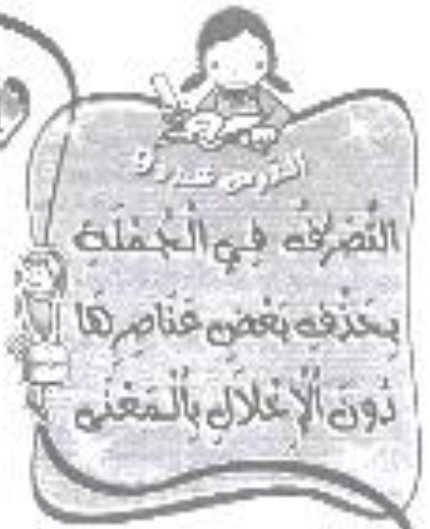 الدرس عدد 9
التَّصَرُّفُ فِي الْجُمْلَةِ
بِحَذْفِ بَعْضِ عَنَاصِرِهَا
دُونَ الْإِخْلَالِ بِالْمَعْنَى